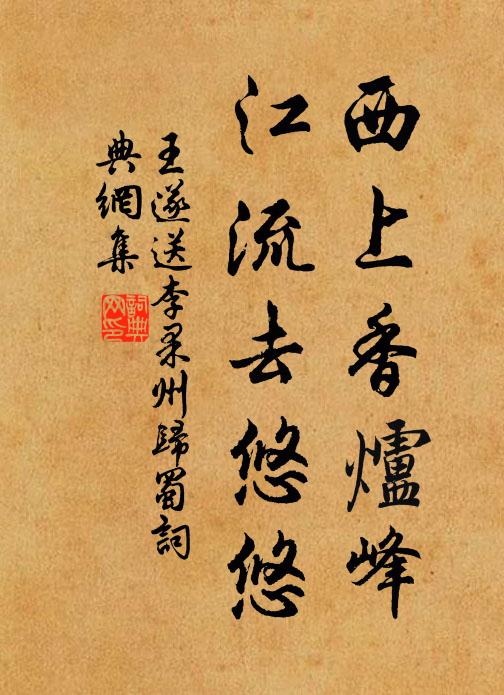 西上香爐峰
江流去悠悠
王遂送李果州歸蜀詞
典網集
詞典網印